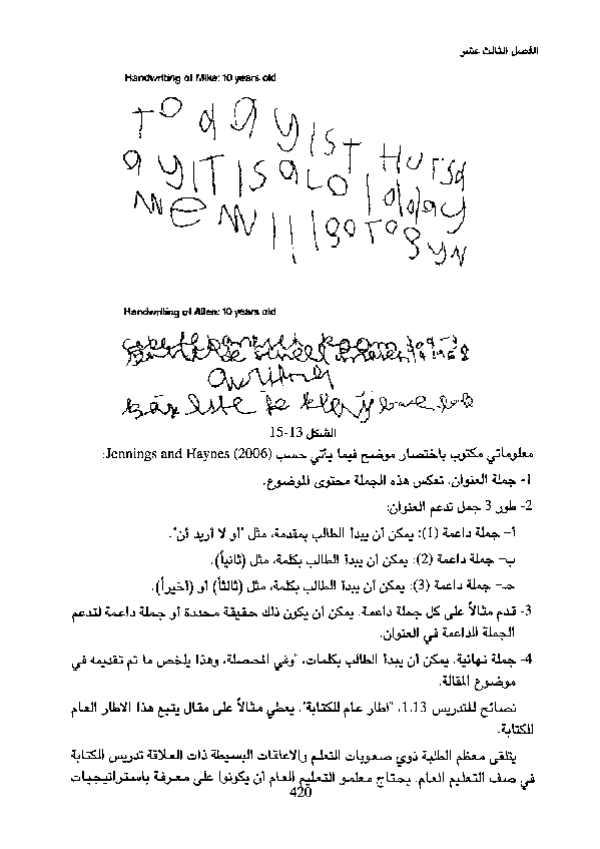 الفصل الثالث عشر
Handwriting of Mike: 10 years old
TO d a y I S T HUrsd
a y IT IS a LO l dday
we will go To gyN
Handwriting of Allen: 10 years old
الشكل 13-15
معلوماتي مكتوب باختصار موضح فيما يأتي حسب Jennings and Haynes (2006):
1- جملة العنوان. تعكس هذه الجملة محتوى الموضوع.
2- طور 3 جمل تدعم العنوان:
أ- جملة داعمة (1): يمكن أن يبدأ الطالب بمقدمة، مثل "أو لا أريد أن".
ب- جملة داعمة (2): يمكن أن يبدأ الطالب بكلمة، مثل (ثانياً).
جـ- جملة داعمة (3): يمكن أن يبدأ الطالب بكلمة، مثل (ثالثاً) أو (أخيراً).
3- قدم مثالاً على كل جملة داعمة. يمكن أن يكون ذلك حقيقة محددة أو جملة داعمة لتدعم
الجملة الداعمة في العنوان.
4- جملة نهائية. يمكن أن يبدأ الطالب بكلمات، "وفي المحصلة، وهذا يلخص ما تم تقديمه في
موضوع المقالة.
نصائح للتدريس 1.13، "اطار عام للكتابة". يعطي مثالاً على مقال يتبع هذا الاطار العام
للكتابة.
يتلقى معظم الطلبة ذوي صعوبات التعلم والاعاقات البسيطة ذات العلاقة تدريس الكتابة
في صف التعليم العام. يحتاج معلمو التعليم العام أن يكونوا على معرفة باستراتيجيات
420